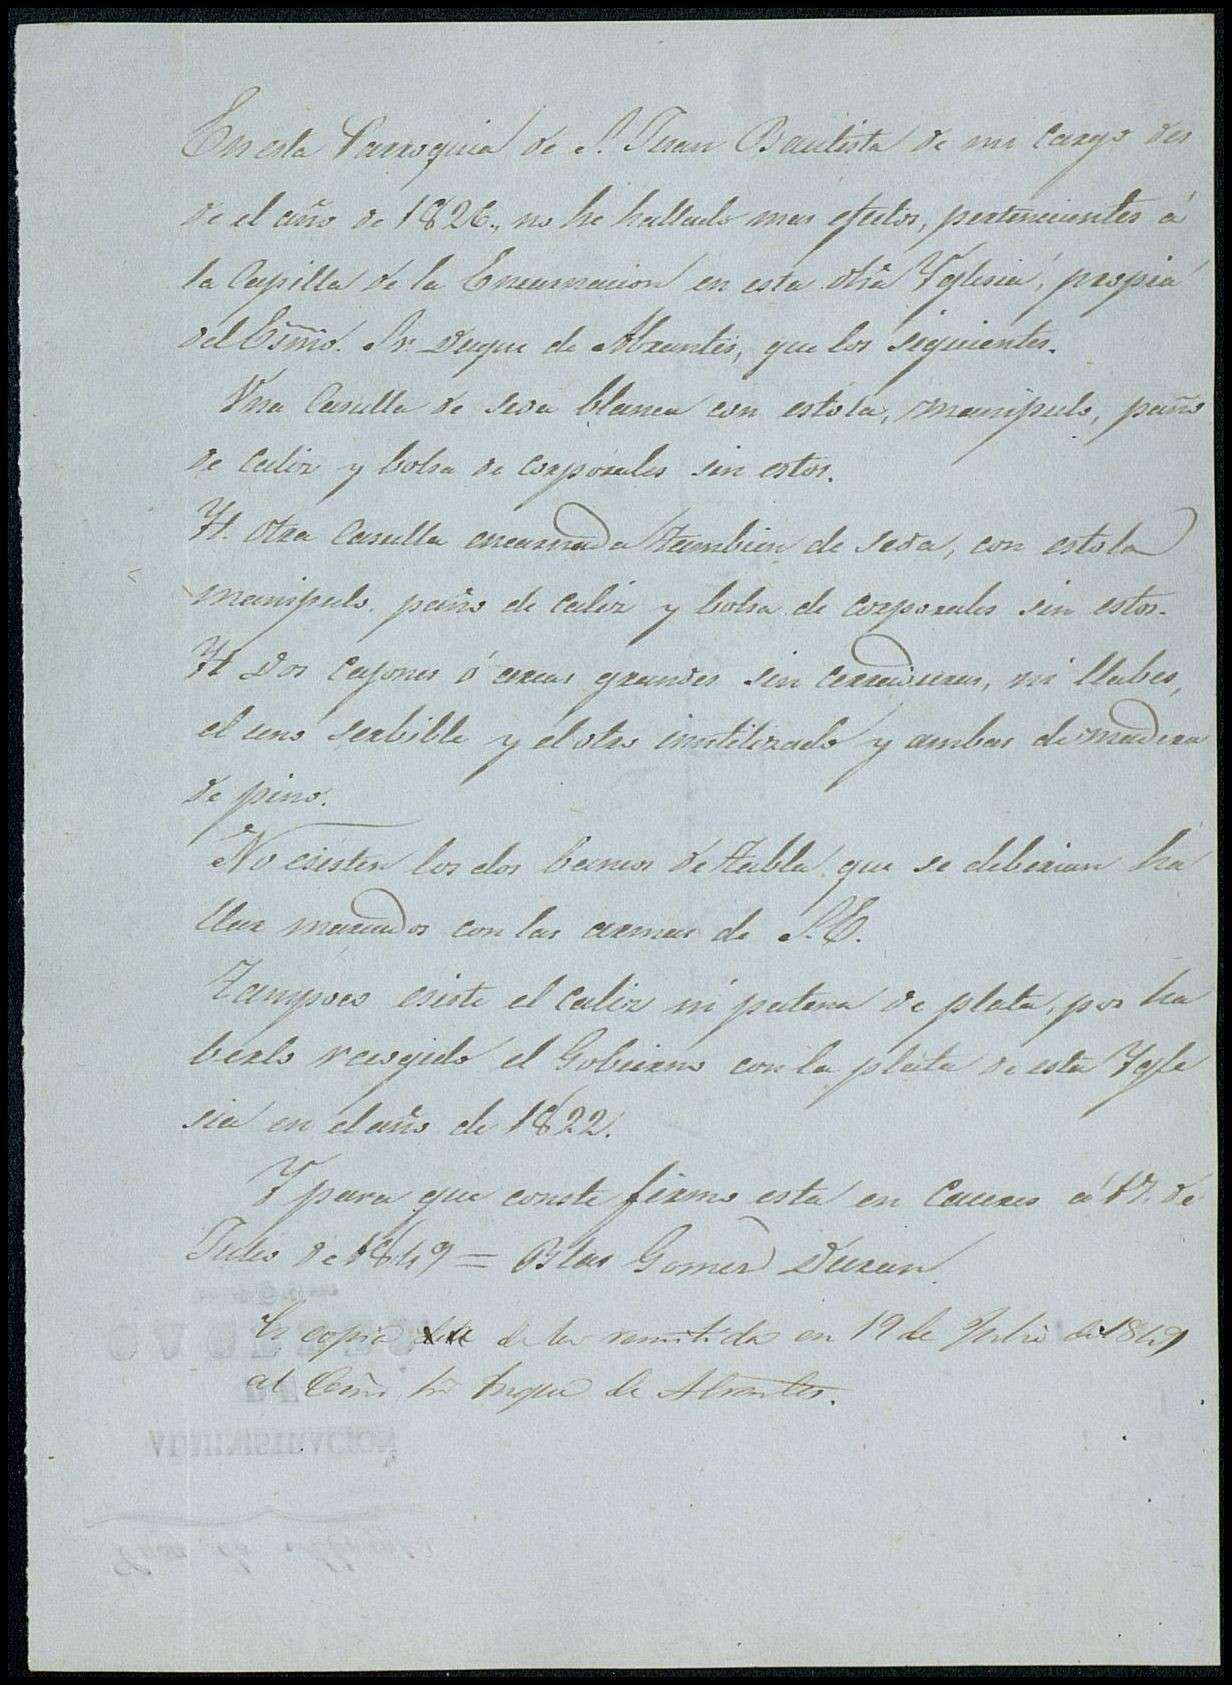 En esta Parroquia de S. Juan Bautista de mi cargo des
de el año de 1826., no he hallado mas efectos, pertenecientes á
la Capilla de la Encarnacion en esta dha Yglesia, propia
del Esmo. Sr. Duque de Abrantes, que los siguientes.
Una Casulla de seda blanca con estola, manipulo, paño
de caliz y bolsa de corporales sin estos.
Yt. otra Casulla encarnada tambien de seda, con estola
manipulo, paño de caliz y bolsa de corporales sin estos.
Yt Dos Cajones ó arcas grandes sin cerraduras, ni llabes,
el uno serbible y el otro inutilizado y ambas de madera
de pino.
No esisten los dos bancos de tabla que se deberian ha
llar marcados con las armas de S.E.
Tampoco esiste el caliz ni patena de plata, por ha
berlo recogido el Gobierno con la plata de esta Ygle
sia en el año de 1822.
Y para que conste firmo esta en Caceres á 17. de
Julio de 1849 = Blas Gomez Duran
Es copia de la remitida en 19 de Julio de 1849
al Esmo Sr Duque de Abrantes.
CACERES
ADMINISTRACION